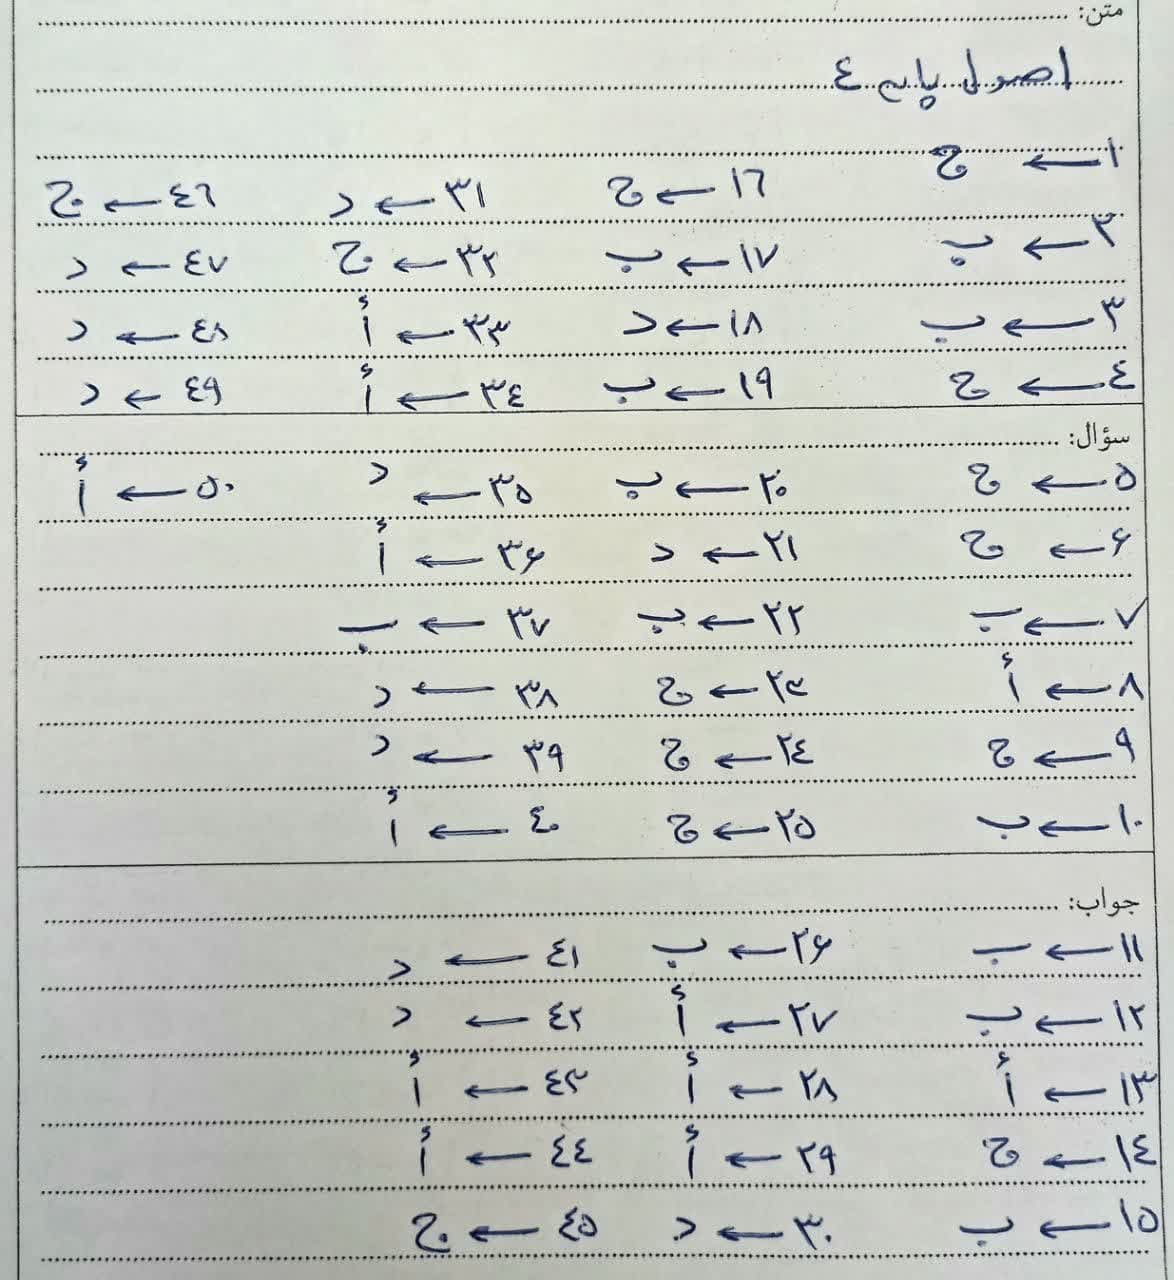 متن:
اصول پایه ٤
١ ← ج
١٦ ← ج
٣١ ← د
٤٦ ← ج
٢ ← ب
١٧ ← ب
٣٢ ← ج
٤٧ ← د
٣ ← ب
١٨ ← د
٣٣ ← أ
٤٨ ← د
٤ ← ج
١٩ ← ب
٣٤ ← أ
٤٩ ← د
سؤال:
٥ ← ج
٢٠ ← ب
٣٥ ← د
٥٠ ← أ
۶ ← ج
٢١ ← د
٣۶ ← أ
٧ ← ب
٢٢ ← ب
٣٧ ← ب
٨ ← أ
٢٣ ← ج
٣٨ ← د
٩ ← ج
٢٤ ← ج
٣٩ ← د
١٠ ← ب
٢٥ ← ج
٤٠ ← أ
جواب:
١١ ← ب
٢۶ ← ب
٤١ ← د
١٢ ← ب
٢٧ ← أ
٤٢ ← د
١٣ ← أ
٢٨ ← أ
٤٣ ← أ
١٤ ← ج
٢٩ ← أ
٤٤ ← أ
١٥ ← ب
٣٠ ← د
٤٥ ← ج